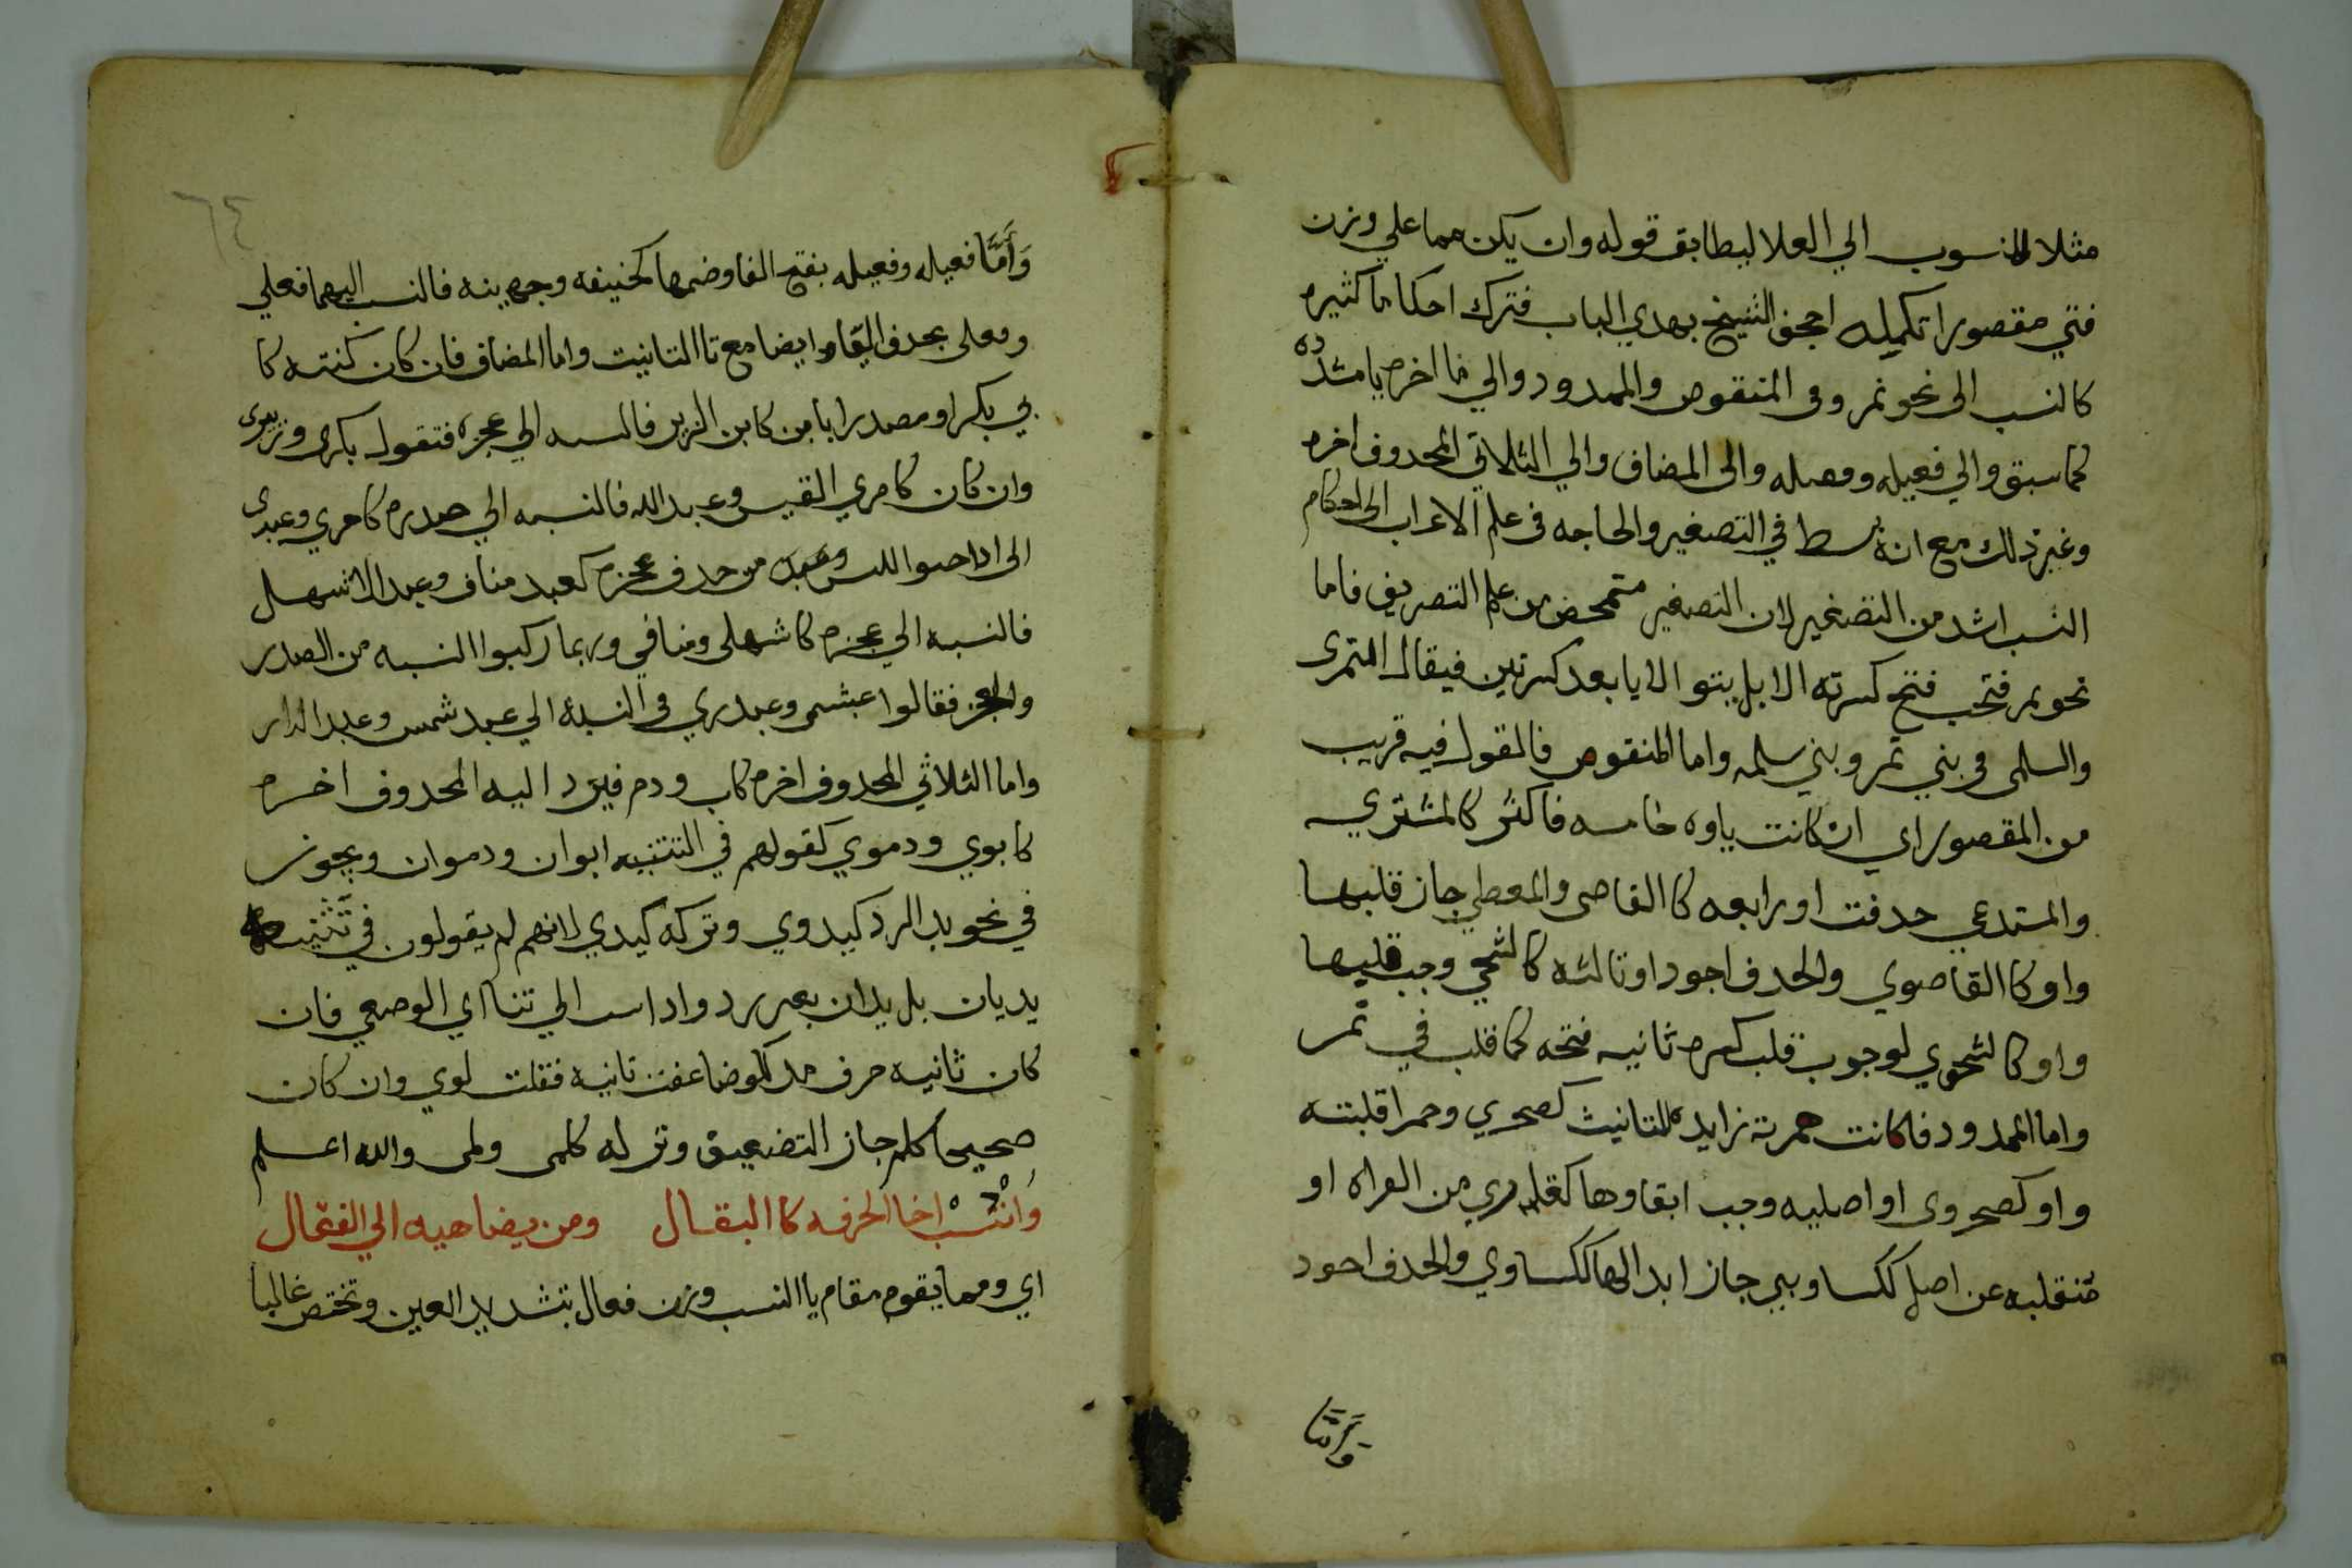 مثلا المنسوب الي العلا ليطابق قوله وان يكن مما علي وزن
فتي مقصورا تكميله اجحف الشيخ بهدي الباب فترك احكاما كثيره
كالنسب الى نحو نمر وفى المنقوص والممدود والي ما اخره يا مشدده
كما سبق والي فعيله وفعيله والى المضاف والي الثلاثي المحدوف اخره
وغير ذلك مع انه بسط في التصغير والحاجه فى علم الاعراب الى احكام
النسب اشد من التصغير لان التصغير متمحض من علم التصريف فاما
نحو نمر فتحب فتح كسرته الا بل يتوالا يا بعد كسرتين فيقال النمرى
والسلمى فى بني نمر وبني سلمه واما المنقوص فالمقول فيه قريب
من المقصور اي ان كانت ياوه خامسه فاكثر كالمشتري
والمستدعي حدفت او رابعه كالقاضى والمعطي جاز قلبها
واو كالقاضوي والحدف اجود او ثالثه كالشجي وجب قلبها
واو كالشجوي لوجوب قلب كسره ثانيه فتحه كما قلب في نمر
واما الممدود فاكانت همزته زايده للتانيث كصحري وحمرا قلبته
واو كصحروى او اصليه وجب ابقاوها كقلمري من القراه او
منقلبه عن اصل ككسا وبير جاز ابدالها ككساوي والحدف اجود
وَاَمَّا
٦٤
وَاَمَّا فعيله وفعيله بفتح الفا وضمها كحنيفه وجهينه فالنسب اليهما فعلي
وفعلى بحدف اليا وايضا مع تا التانيت واما المضاف فان كان كنيته كا
بي بكر او مصدرا بابن كابن الزبير فالنسبه الي عجزه فتقول بكرى وزبيرى
وان كان كامري القيس وعبد الله فالنسبه الي صدره كامري وعبدى
الى اذا خيفوا اللبس من حدف عجزه كعبد مناف وعبد الاشهل
فالنسبه الي عجزه كاشهلى ومنافي وربما ركبوا النسبه من الصدر
والعجز فقالوا عبشمى وعبدري فى النسبة الي عبد شمس وعبد الدار
واما الثلاثي المحدوف اخره كاب ودم فيرد اليه المحدوف اخره
كابوي ودموي كقولهم في التثنيه ابوان ودموان ويجوز
في نحو يد الرد كيدوي وتركه كيدي لانهم لم يقولون في تثنيته
يديان بل يدان بغير رد واذا نسب الي ثناي الوضعي فان
كان ثانيه حرف مد كلو ضاعفت ثانيه فقلت لوي وان كان
صحيحا كلم جاز التضعيف وتركه كلمى ولمى والله اعلم
وَانْسُبْ اخا الحرفه كالبقال ومن يضاهيه الي الفعال
اي ومما يقوم مقام يا النسب وزن فعال بتشديد العين وتختص غالبا